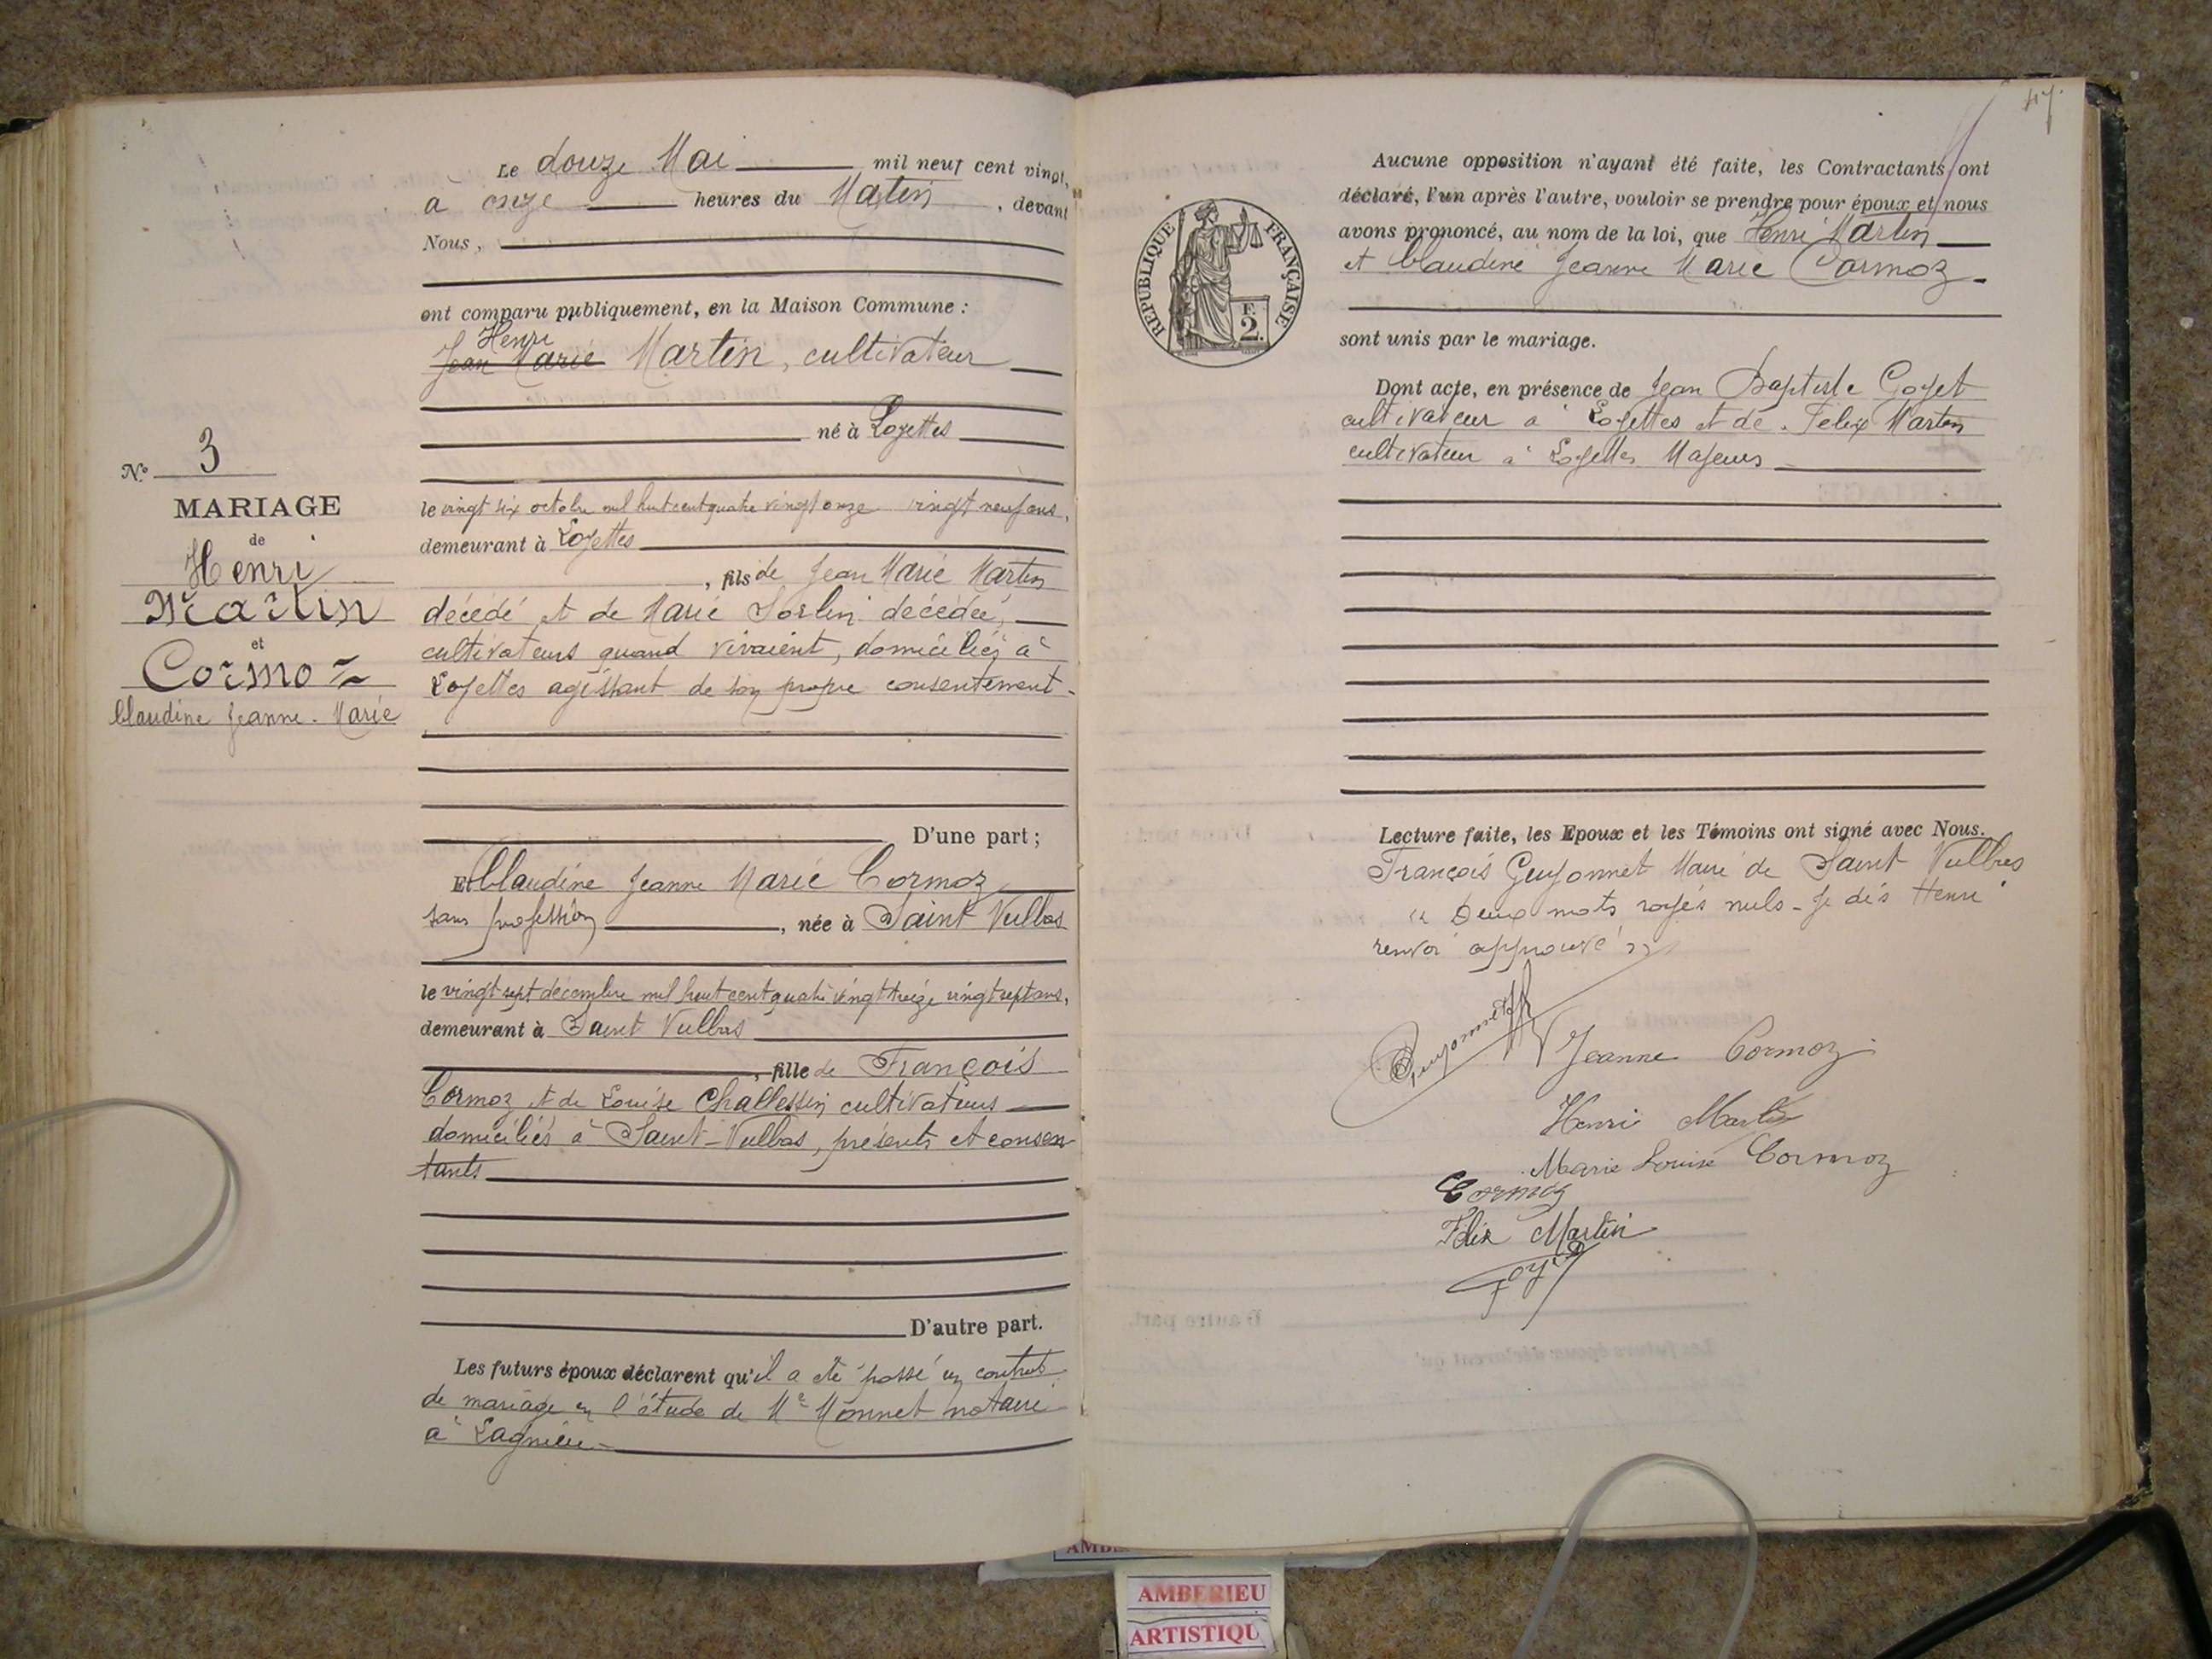 Le douze Mai mil neuf cent vingt,
à onze heures du Matin, devant
Nous,
ont comparu publiquement, en la Maison Commune :
Henri
Jean Marie Martin, cultivateur
né à Loyettes
le vingt six octobre mil huit cent quatre vingt onze vingt neuf ans,
demeurant à Loyettes
, fils de Jean Marie Martin
décédé et de Marie Sorlin décédée,
cultivateurs quand vivaient, domiciliés à
Loyettes agissant de son propre consentement
D'une part ;
Et Claudine Jeanne Marie Cormoz
sans profession, née à Saint Vulbas
le vingt sept décembre mil huit cent quatre vingt treize vingt sept ans,
demeurant à Saint Vulbas
, fille de François
Cormoz et de Louise Challessin cultivateurs
domiciliés à Saint-Vulbas, présents et consen
tants
D'autre part.
Les futurs époux déclarent qu'il a été passé un contrat
de mariage en l'étude de Me Monnet notaire
à Lagnieu
N° 3
MARIAGE
de
Henri
Martin
et
Cormoz
Claudine Jeanne-Marie
47
Aucune opposition n'ayant été faite, les Contractants ont
déclaré, l'un après l'autre, vouloir se prendre pour époux et nous
avons prononcé, au nom de la loi, que Henri Martin
et Claudine Jeanne Marie Cormoz
sont unis par le mariage.
REPUBLIQUE FRANÇAISE
F.
2.
Dont acte, en présence de Jean Baptiste Goyet
cultivateur à Loyettes et de Felix Martin
cultivateur à Loyettes Majeurs
Lecture faite, les Epoux et les Témoins ont signé avec Nous.
François Guyonnet Maire de Saint Vulbas
« Deux mots rayés nuls - Je dis Henri
renvoi approuvé »
Guyonnet
Jeanne Cormoz
Henri Martin
Marie Louise Cormoz
Cormoz
Félix Martin
Goyet
AMBERIEU
ARTISTIQU